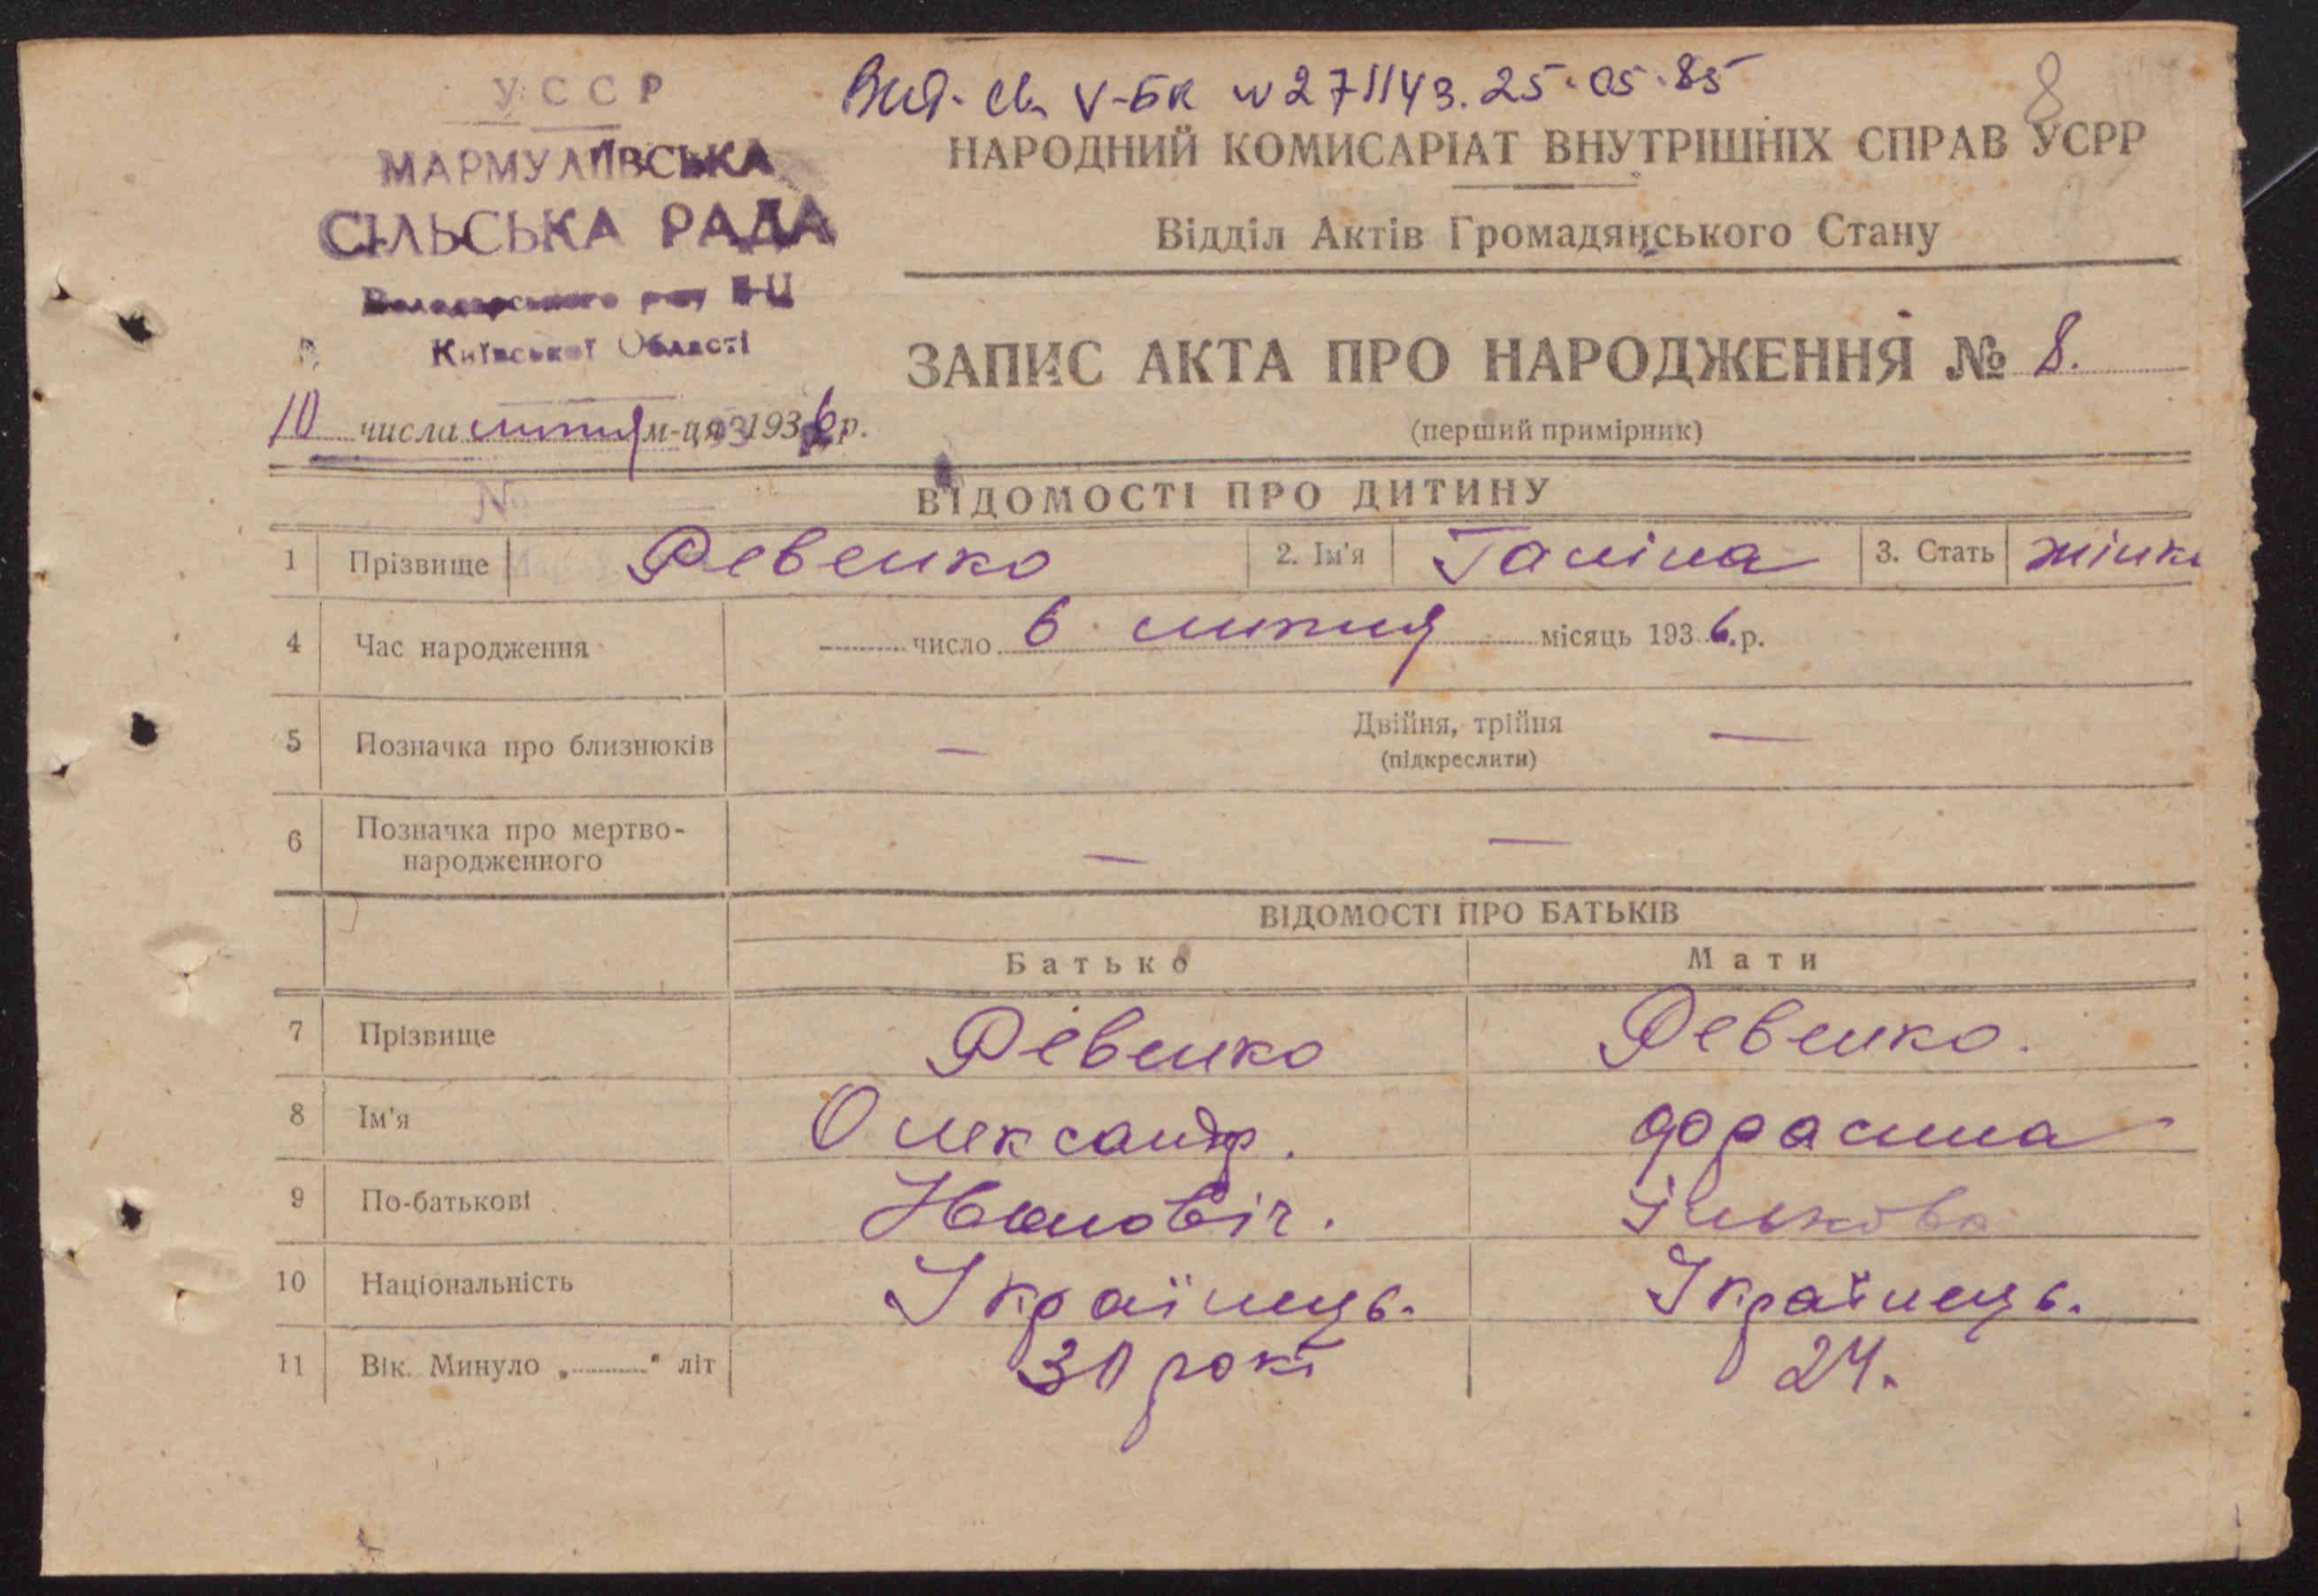 УССР
МАРМУЛІЇВСЬКА
СІЛЬСЬКА РАДА
Володарського р-ну
Київської Області
10 числа липня м-ця 1936 р.
Вид. св. V-БК № 271143. 25.05.85
8
НАРОДНИЙ КОМИСАРІАТ ВНУТРІШНІХ СПРАВ УСРР
Відділ Актів Громадянського Стану
ЗАПИС АКТА ПРО НАРОДЖЕННЯ № 8.
(перший примірник)
№
ВІДОМОСТІ ПРО ДИТИНУ
1 Прізвище Ревенко 2. Ім'я Галіна 3. Стать жінк
4 Час народження число 6 липня місяць 1936. р.
5 Позначка про близнюків — Двійня, трійня —
(підкреслити)
6 Позначка про мертво-
народженного — —
ВІДОМОСТІ ПРО БАТЬКІВ
Батько Мати
7 Прізвище Ревенко Ревенко.
8 Ім'я Олександр. Горасина
9 По-батькові Івановіч. Ількова
10 Національність Українець. Українець.
11 Вік. Минуло „ " літ 30 рокі 24.